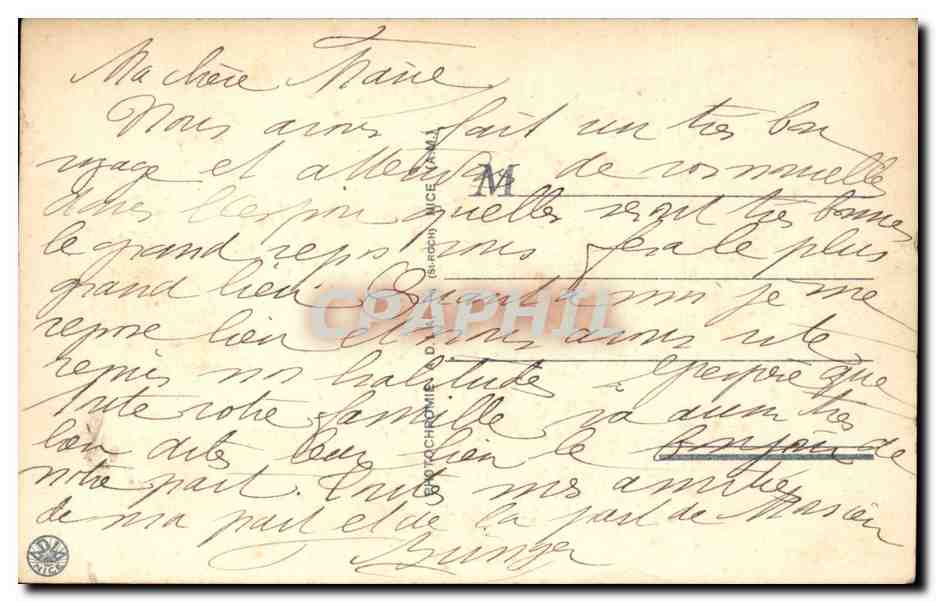 Ma chère Marie
Nous avons fait un très bon
voyage et attendons de vos nouvelles
dans l'espoir quelles seront très bonnes
le grand repos vous fera le plus
grand bien Quant a moi je me
repose bien et nous avons vite
repris nos habitudes j'espère que
toute votre famille va aussi très
bien dites leur bien le bonjour de
notre part. Toutes mes amitiés
de ma part et de la part de
M
PHOTOCHROMIE (St-ROCH) NICE (A.-M.)
CPAPHIL
NICE